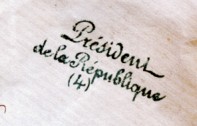 Président
de la République
(4)